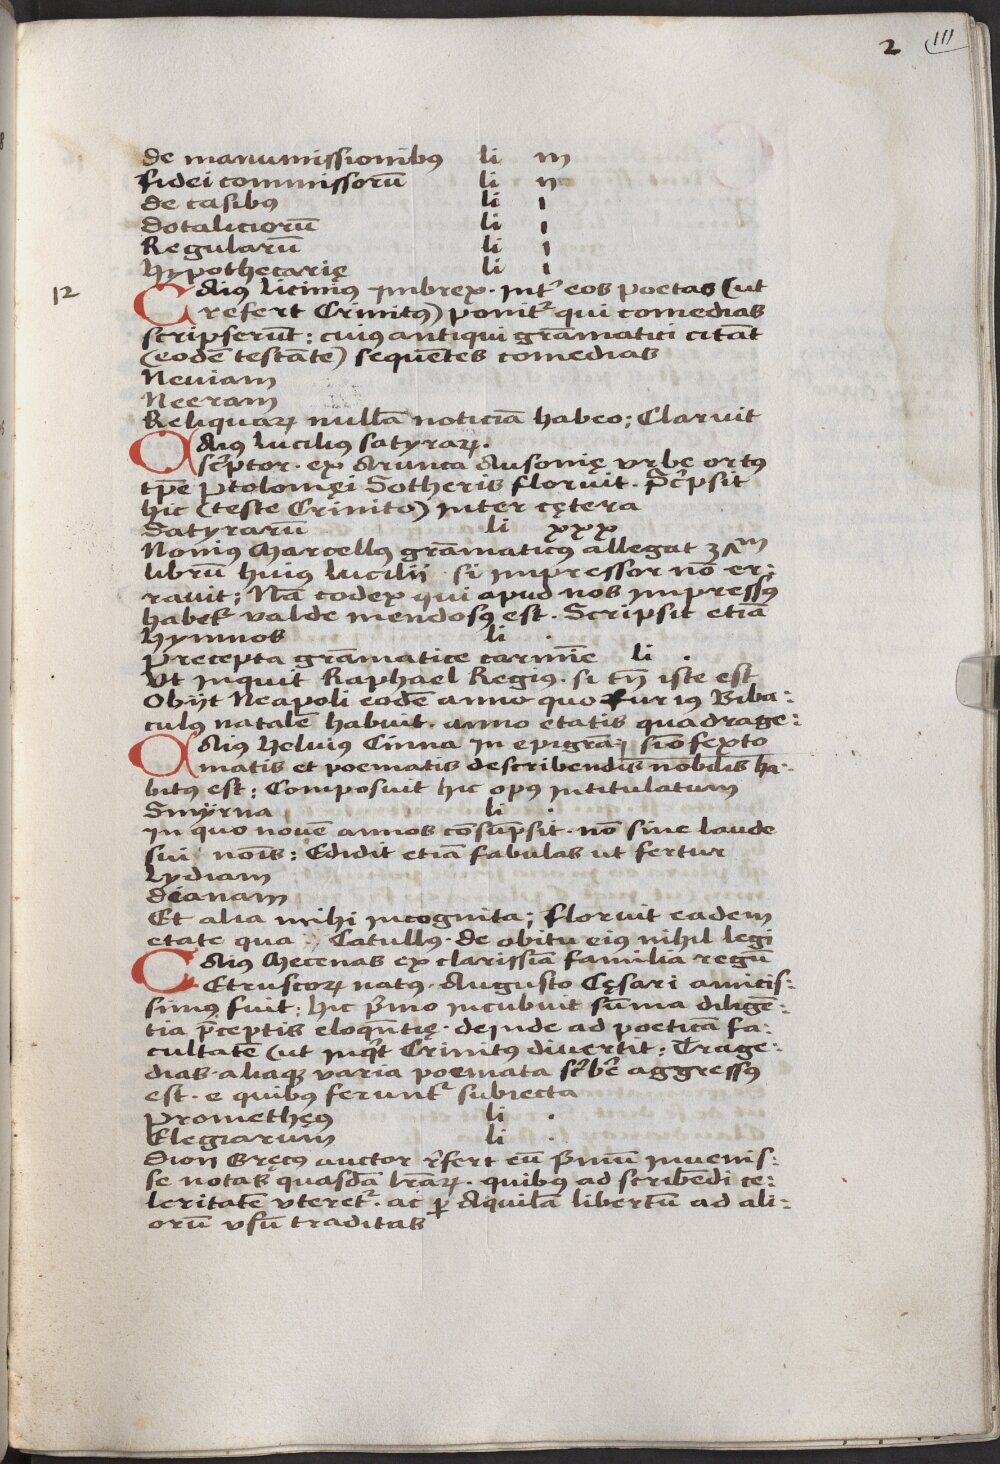 2 111
de manumissionibus li m
fidei commissorū li ıı
de casibus li ı
dotaliciorū li ı
Regularū li ı
Hypothecarię li ı
12
Caius Licinius Imbrex. Intr̄ eos poetas (ut
refert Crinitus) ponitr̄ qui comedias
scripserūt: cuius antiqui grāmatici citāt
(eodē testāte) sequētes comedias
Neviam
Neeram
Reliquarꝝ nullā noticiā habeo; Claruit
Caius Lucilius satyrarꝝ.
scptor. ex Arunca Ausonię vrbe ortus
tꝑe Ptolomęi Sotheris floruit. Scpsit
hic (teste Crinito) inter cętera
Satyrarū li xxx
Nonius Marcellus grāmaticus allegat 3Λm
librū huius Lucilii si impressor nō er:
ravit; Nā codex qui apud nos impressus
habetr̄ valde mendosus est. Scripsit etiā
Hymnos li .
Precepta grāmatice carmīe li .
Ut inquit Raphael Regius. si tn̄ iste est
Obijt Neapoli eodē anno quo Furius Biba:
culus natalē habuit. anno etatis quadrage:
simo sexto
Caius Heluius Cinna in epigrā
matis et poematis describendis nobilis ha:
bitus est: Composuit hic opus intitulatum
Smÿrna li .
in quo nouē annos cōsūpsit. nō sine laude
sui nois: Edidit etiā fabulas ut fertur
Lydiam
dianam
Et alia mihi incognita; floruit eadem
etate qua Catullus. de obitu eius nihil legi
Caius Mecenas ex clarissīa familia regū
Etruscorꝝ natus. Augusto Cęsari amicis:
simus fuit: hic pmo incubuit sūma diligē:
tia pceptis eloquētię. deinde ad poeticā fa:
cultatē (ut inqt Crinitus divertit: Trage:
dias. aliaque varia poemata scbē aggressus
est. e quibus feruntr̄ subiecta
Prometheus li .
Elegiarum li .
Dion Gręcus auctor rfert eū pmū invenis:
se notas quasdā lrārꝝ. quibus ad scribēdi ce:
leritatē vteretr̄. ac ꝑ Aquilā libertū ad ali:
orū vsū traditas